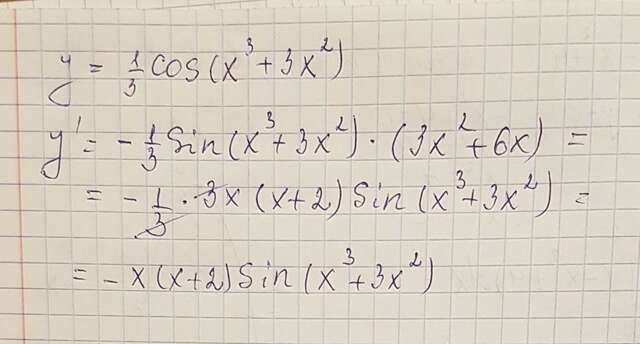 y = 1/3 cos(x³+3x²)
y' = -1/3 Sin(x³+3x²)·(3x²+6x) =
= -1/3·3x(x+2)Sin(x³+3x²) =
= -x(x+2)Sin(x³+3x²)